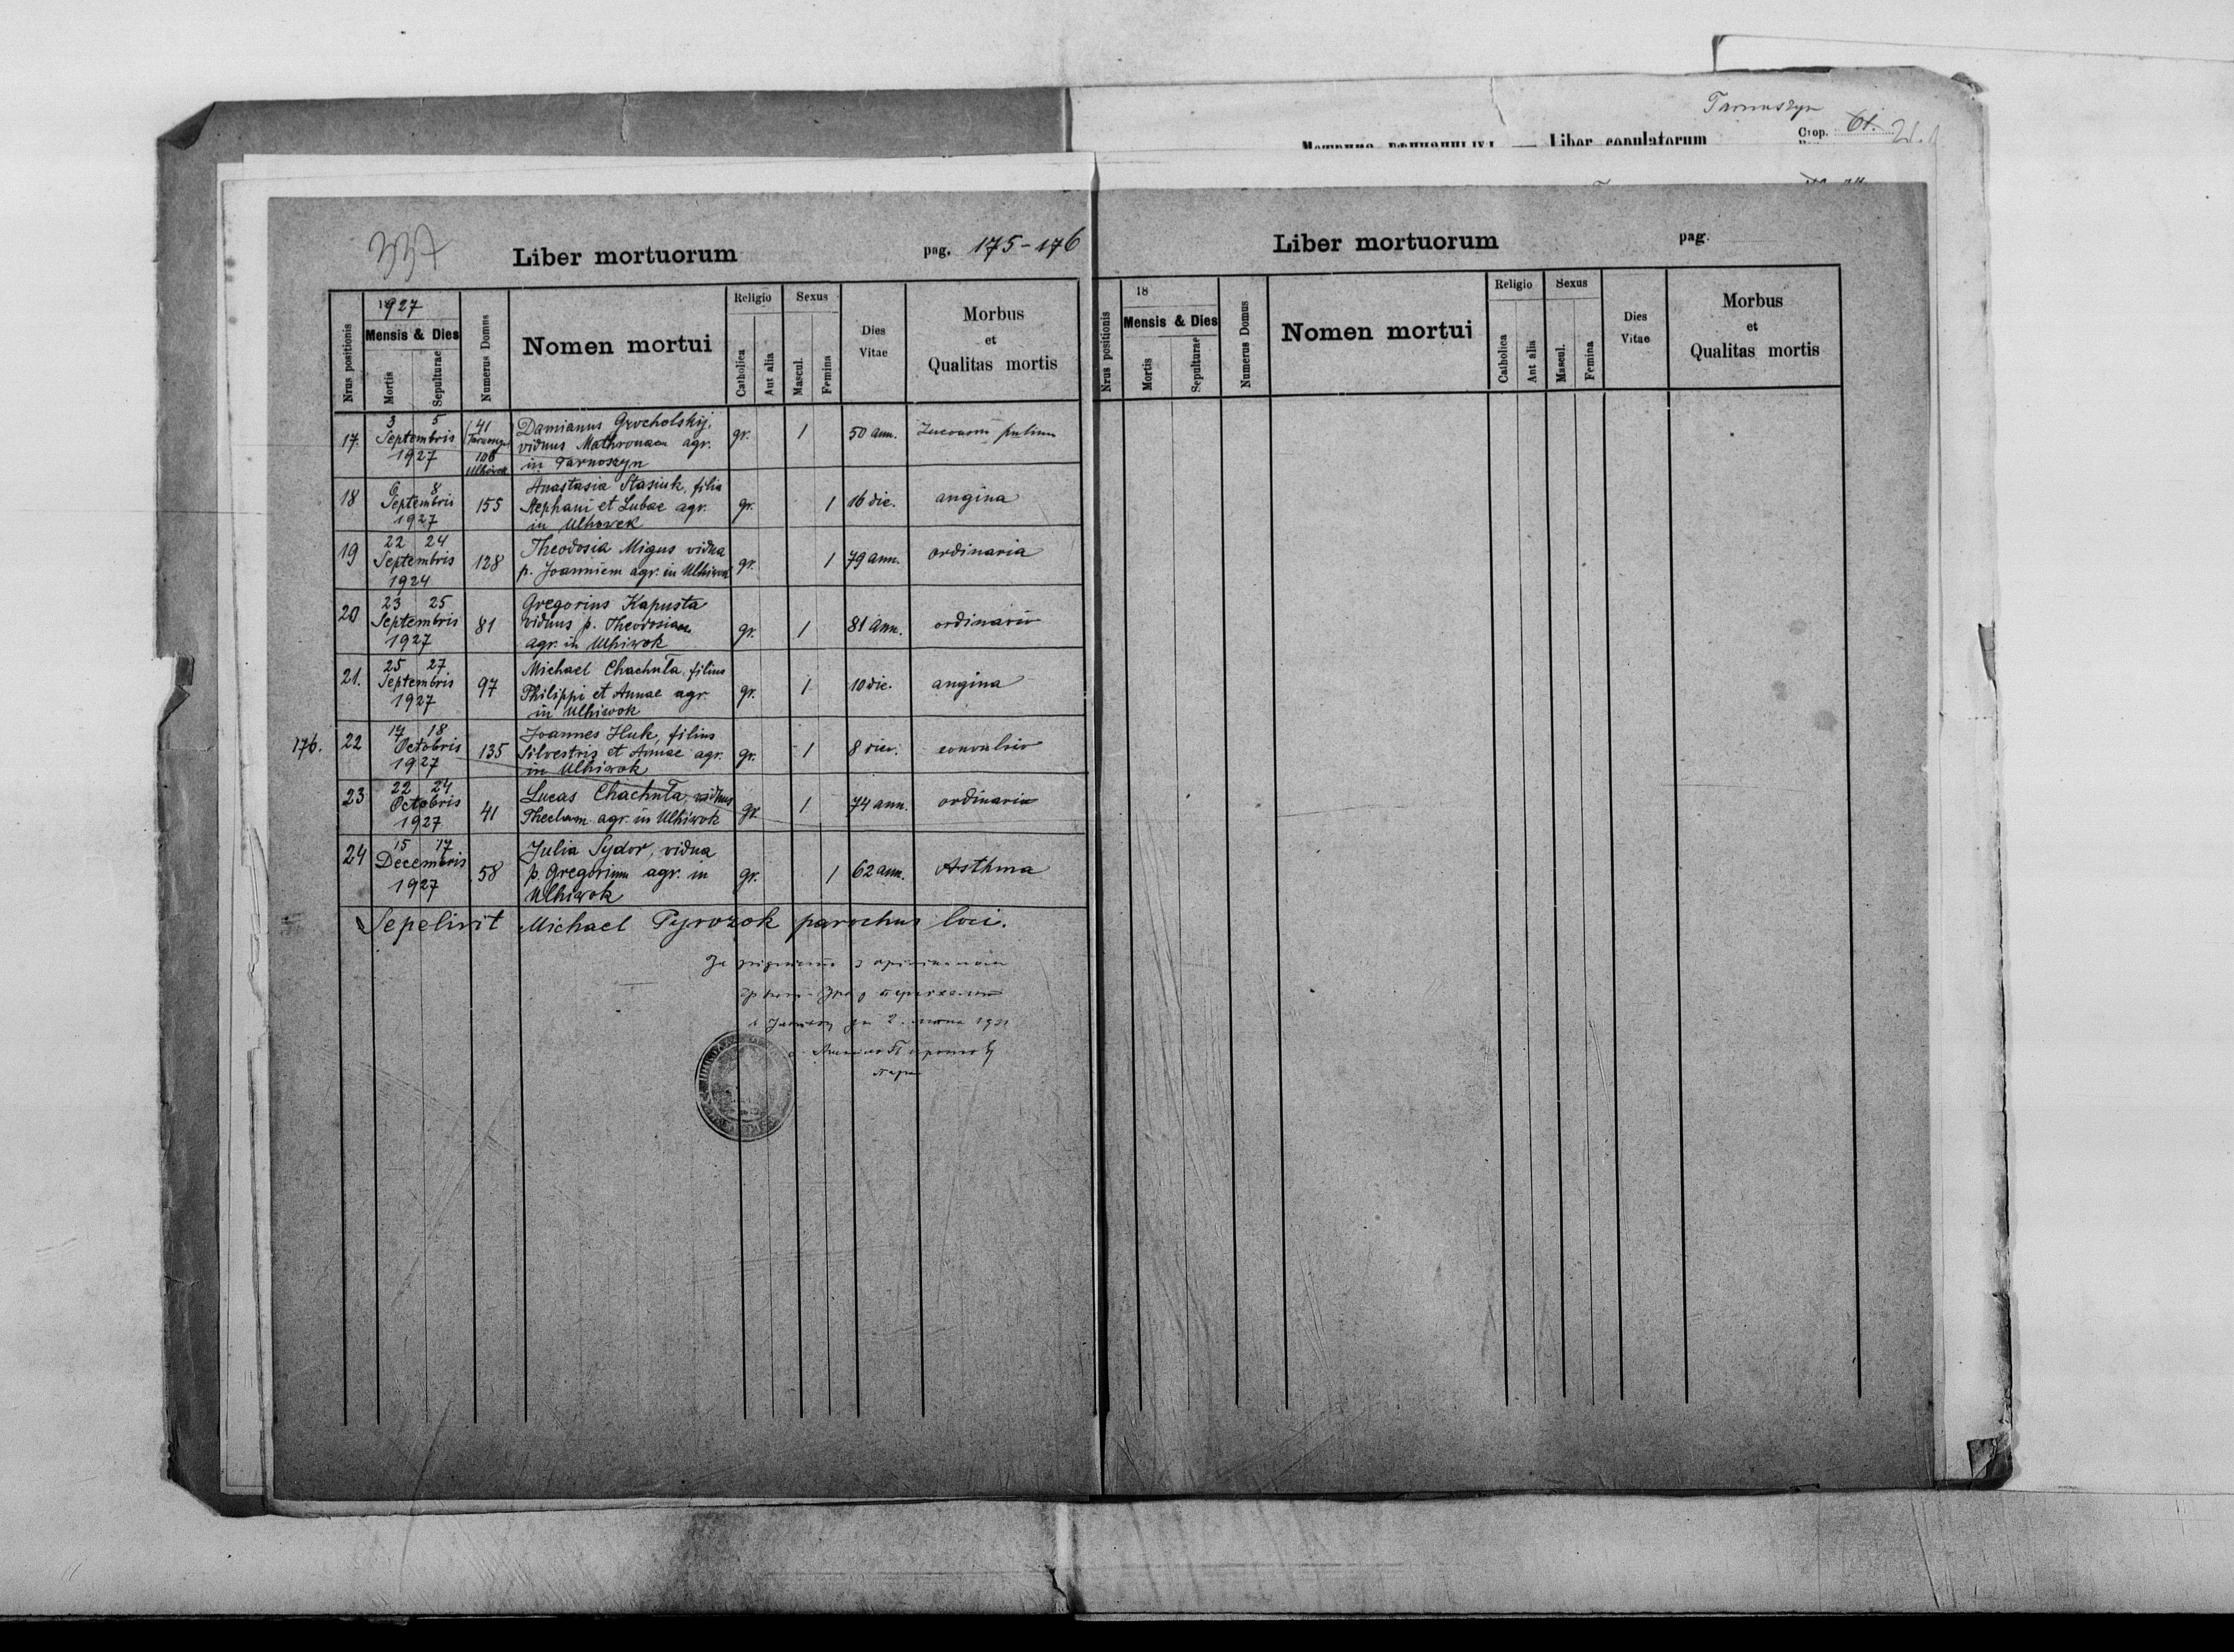 Tarnoszyn
Стор. 61. 21.
Метрика вѣнчанныхъ — Liber copulatorum
337
Liber mortuorum
pag. 175-176
Nrus positionis
1927
Mensis & Dies
Mortis
Sepulturae
Numerus Domus
Nomen mortui
Religio
Catholica
Aut alia
Sexus
Mascul.
Femina
Dies
Vitae
Morbus
et
Qualitas mortis
17. 3 5 Septembris 1927
41 (Tarnoszyn) 108 Ulhówek
Damianus Grocholskij,
viduus Mathronam agr.
in Tarnoszyn
gr. 1 50 ann.
18 6 8 Septembris 1927
155
Anastasia Stasiuk, filia
Stephani et Lubae agr.
in Ulhowek
gr. 1 16 die. angina
19 22 24 Septembris 1924
128
Theodosia Migus vidua
p. Joannem agr. in Ulhiwok
gr. 1 79 ann. ordinaria
20 23 25 Septembris 1927
81
Gregorius Kapusta
viduus p. Theodosiam
agr. in Ulhiwok
gr. 1 81 ann. ordinaria
21. 25 27 Septembris 1927
97
Michael Chachuła, filius
Philippi et Annae agr.
in Ulhiwok
gr. 1 10 die. angina
176. 22 17 18 Octobris 1927
135
Joannes Huk, filius
Silvestris et Annae agr.
in Ulhiwok
gr. 1 8 die.
23 22 24 Octobris 1927
41
Lucas Chachuła, viduus
Theclam agr. in Ulhiwok
gr. 1 74 ann. ordinaria
24 15 17 Decembris 1927
58
Julia Sydor, vidua
p. Gregorium agr. in
Ulhiwok
gr. 1 62 ann. Asthma
Sepelivit Michael Pyrozok parochus loci.
Liber mortuorum
pag.
Nrus positionis
18
Mensis & Dies
Mortis
Sepulturae
Numerus Domus
Nomen mortui
Religio
Catholica
Aut alia
Sexus
Mascul.
Femina
Dies
Vitae
Morbus
et
Qualitas mortis